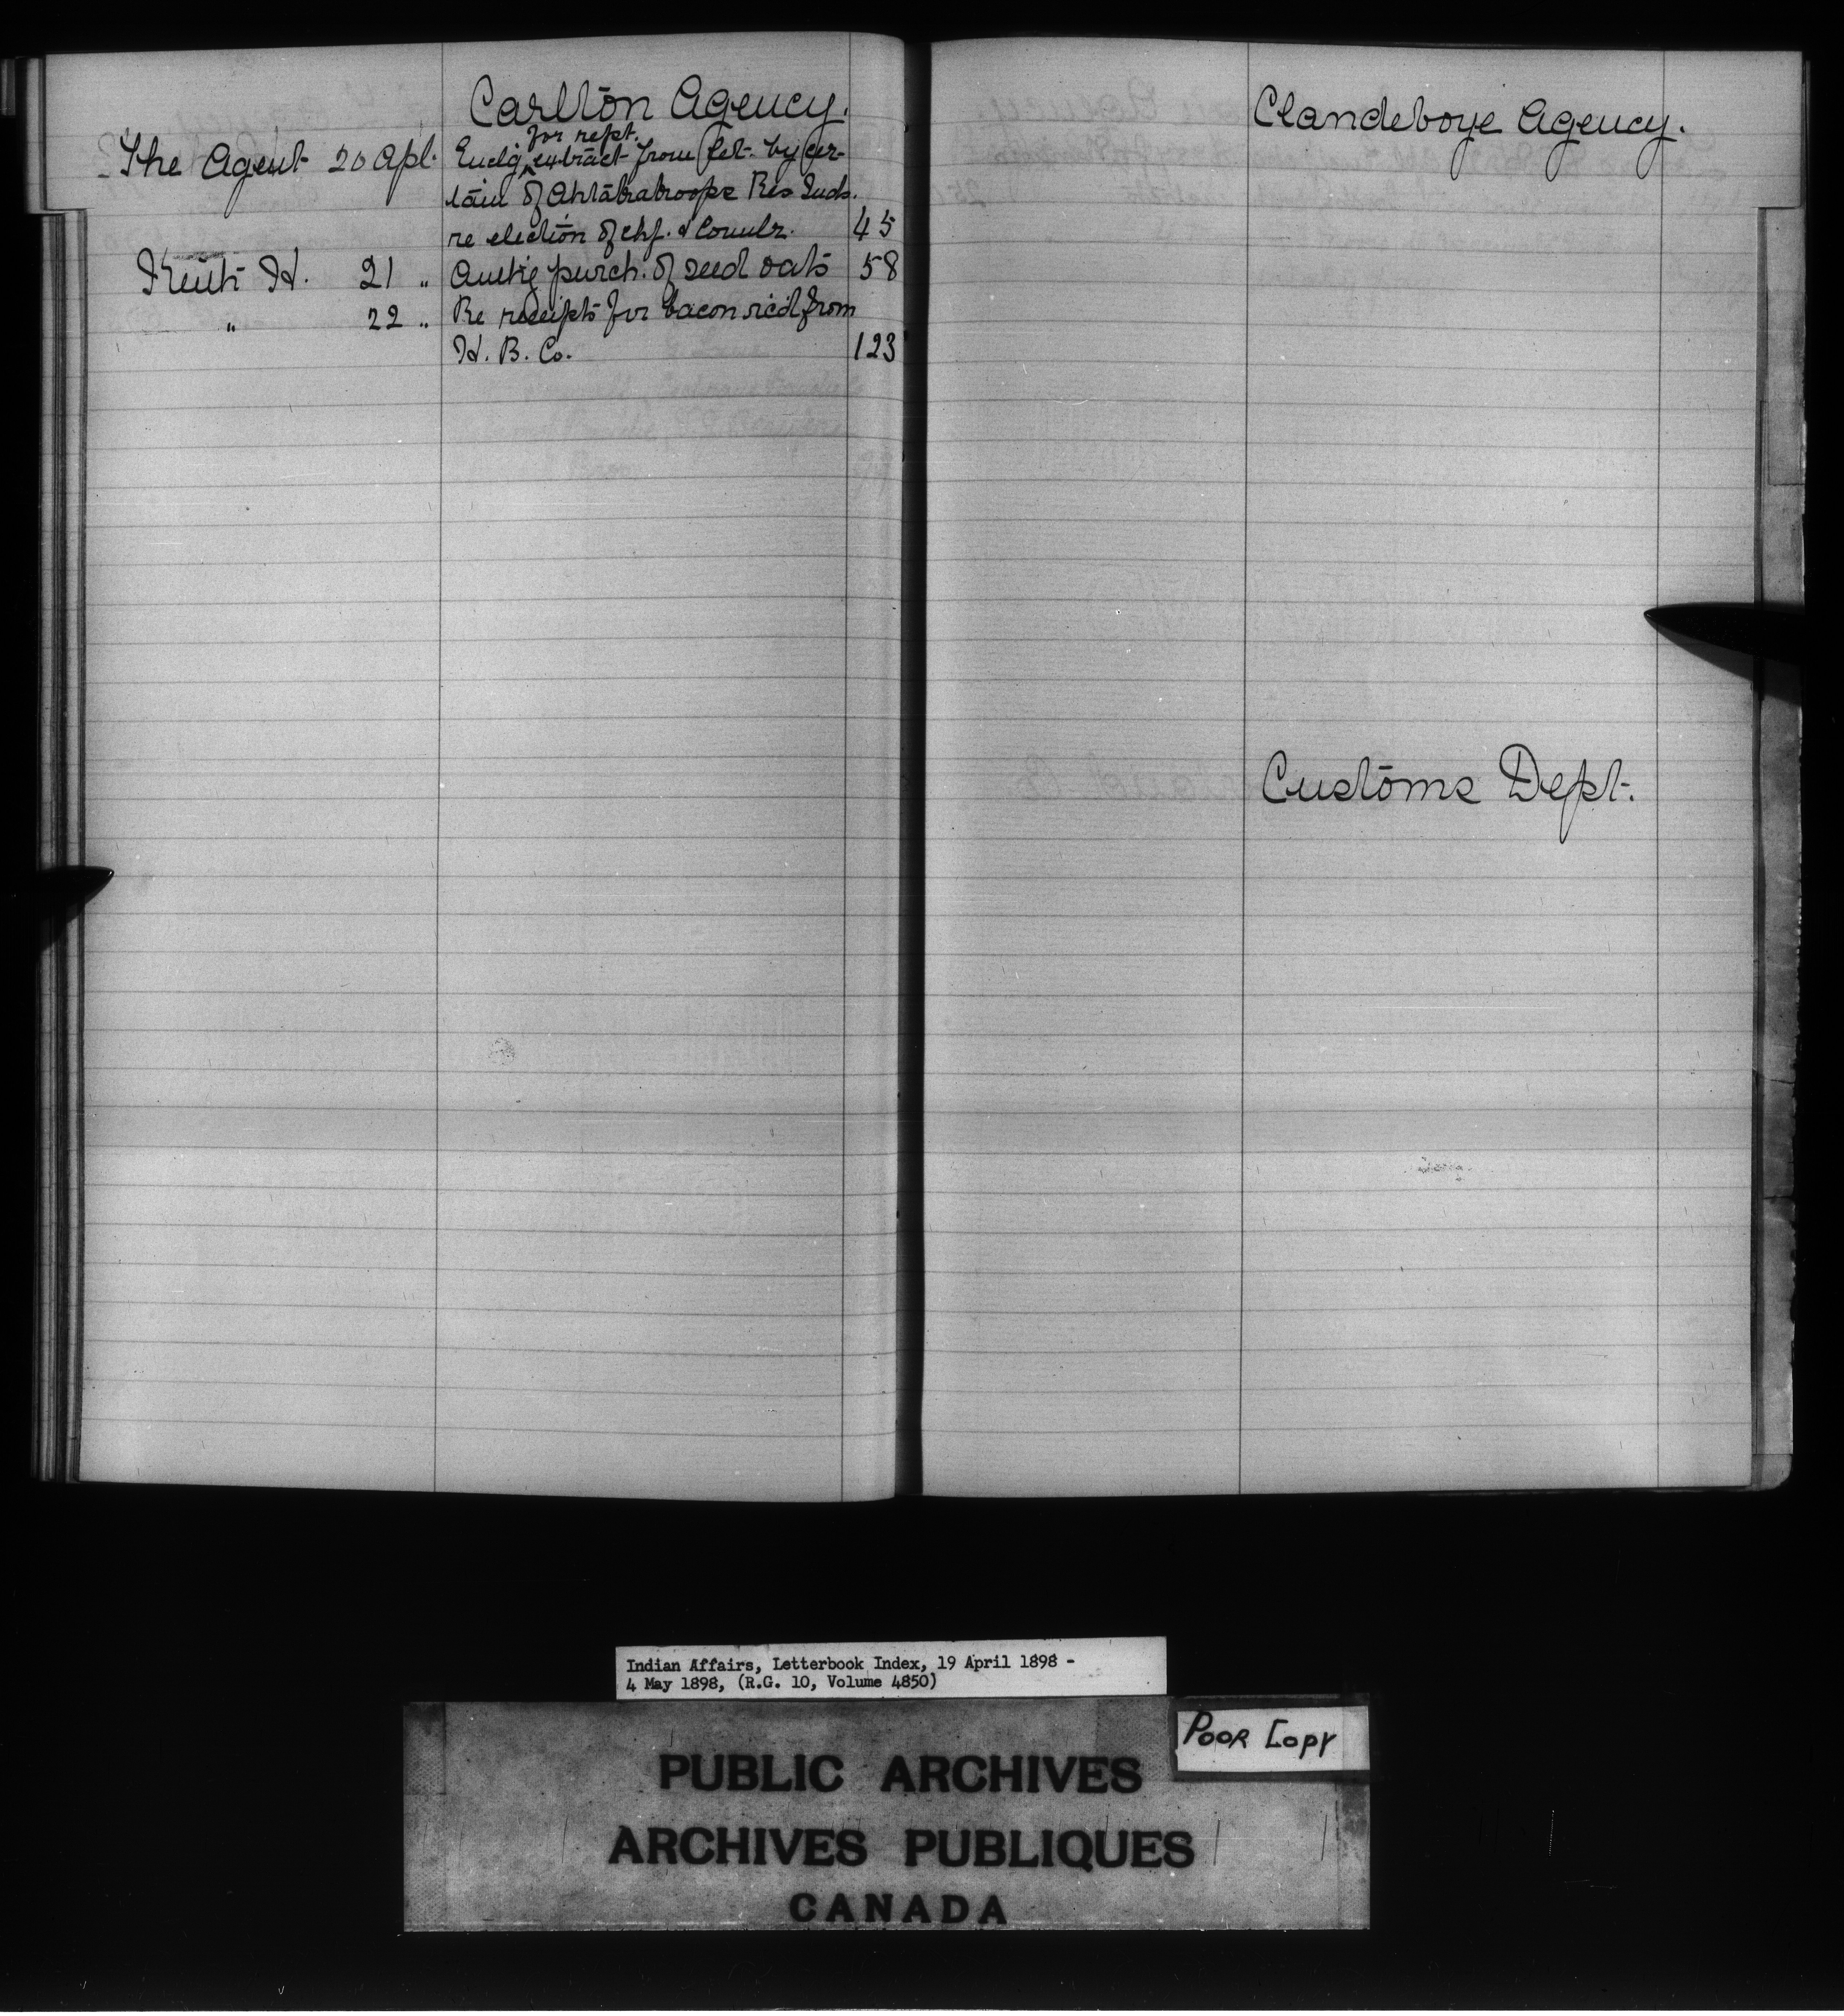 Carlton Agency.
for rept.
The Agent 20 Apl. Enclg extract from let. by cer-
tain of Ahtahkakoops Res Inds.
re election of chf. & Counlr. 45
Keith H. 21 " Authg purch. of seed oats 58
" 22 " Re receipts for bacon recd from
H. B. Co. 123
Clandeboye Agency.
Customs Dept.
Indian Affairs, Letterbook Index, 19 April 1898 -
4 May 1898, (R.G. 10, Volume 4850)
POOR COPY
PUBLIC ARCHIVES
ARCHIVES PUBLIQUES
CANADA